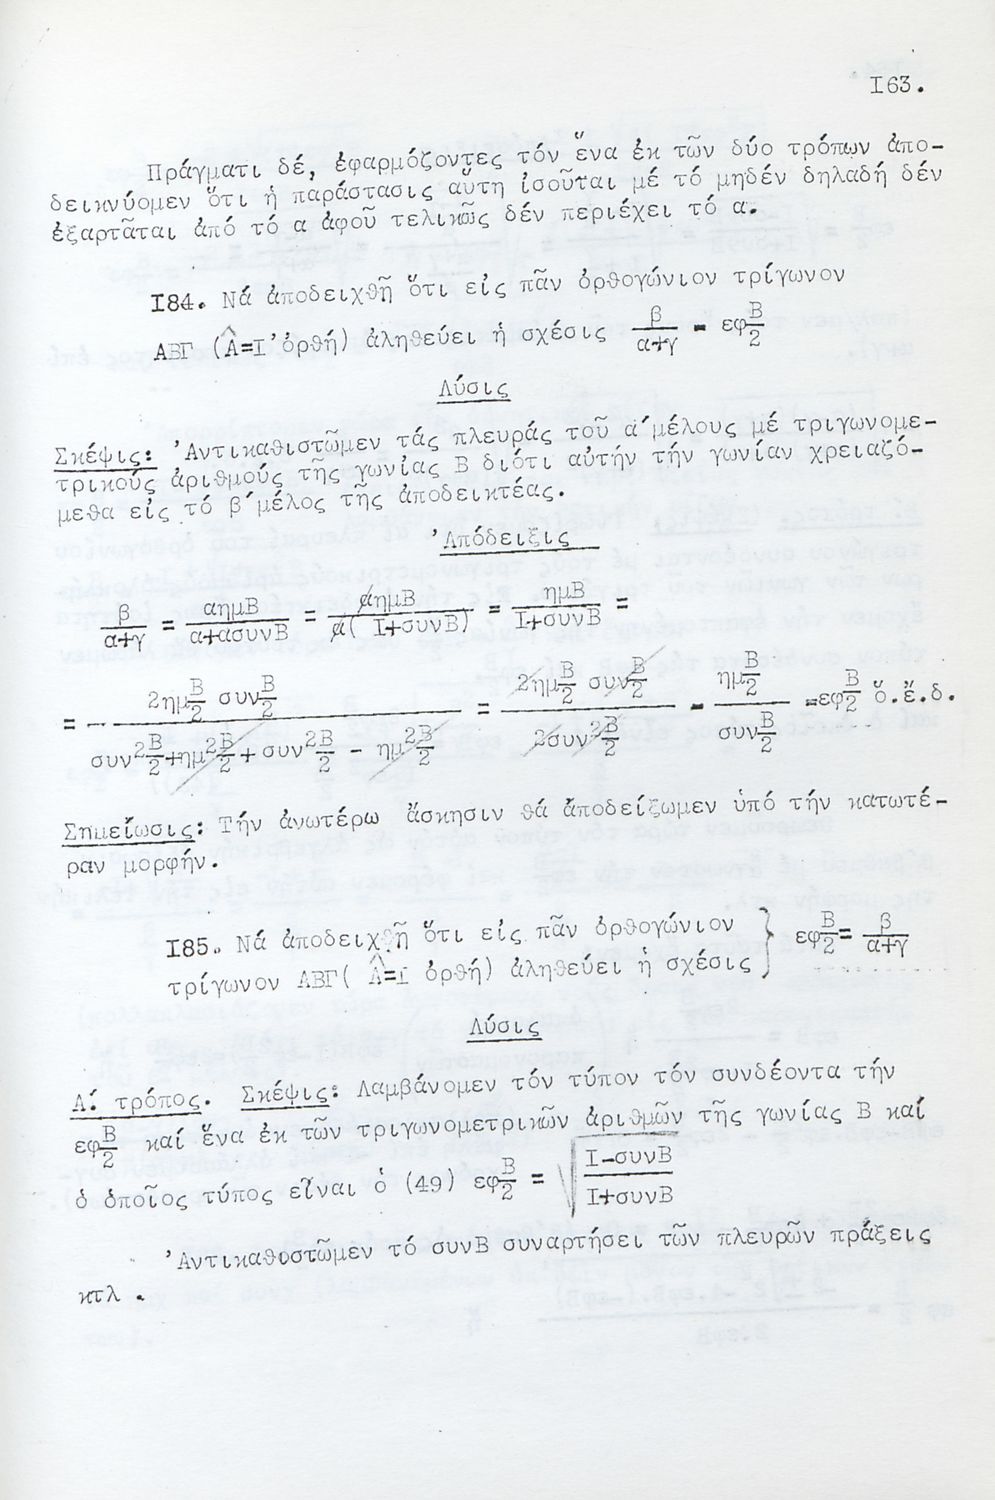 I63.
Πράγματι δέ, ἐφαρμόζοντες τόν ἕνα ἐκ τῶν δύο τρόπων ἀπο-
δεικνύομεν ὅτι ἡ παράστασις αὕτη ἰσοῦται μέ τό μηδέν δηλαδή δέν
ἐξαρτᾶται ἀπό τό α ἀφοῦ τελικῶς δέν περιέχει τό α.
I84. Νά ἀποδειχθῇ ὅτι εἰς πᾶν ὀρθογώνιον τρίγωνον
ΑΒΓ (Â=I'ὀρθή) ἀληθεύει ἡ σχέσις β/(α+γ) = εφ B/2
Λύσις
Σκέψις: 'Αντικαθιστῶμεν τάς πλευράς τοῦ α΄μέλους μέ τριγωνομε-
τρικούς ἀριθμούς τῆς γωνίας Β διότι αὐτήν τήν γωνίαν χρειαζό-
μεθα εἰς τό β΄μέλος τῆς ἀποδεικτέας.
'Απόδειξις
β/(α+γ) = αημΒ/(α+ασυνΒ) = αημΒ/(α( I+συνΒ)) = ημΒ/(I+συνΒ) =
= 2ημ B/2 συν B/2 / (συν² B/2 + ημ² B/2 + συν² B/2 - ημ² B/2) = 2ημ B/2 συν B/2 / (2συν² B/2) = ημ B/2 / συν B/2 = εφ B/2 ὅ.ἔ.δ.
Σημείωσις: Τήν ἀνωτέρω ἄσκησιν θά ἀποδείξωμεν ὑπό τήν κατωτέ-
ραν μορφήν.
I85. Νά ἀποδειχθῇ ὅτι εἰς πᾶν ὀρθογώνιον
τρίγωνον ΑΒΓ( Â=I ὀρθή) ἀληθεύει ἡ σχέσις } εφ B/2 = β/(α+γ)
Λύσις
Α΄. τρόπος. Σκέψις: Λαμβάνομεν τόν τύπον τόν συνδέοντα τήν
εφ B/2 καί ἕνα ἐκ τῶν τριγωνομετρικῶν ἀριθμῶν τῆς γωνίας Β καί
ὁ ὁποῖος τύπος εἶναι ὁ (49) εφ B/2 = √((I-συνΒ)/(I+συνΒ))
'Αντικαθοστῶμεν τό συνΒ συναρτήσει τῶν πλευρῶν πράξεις
κτλ .